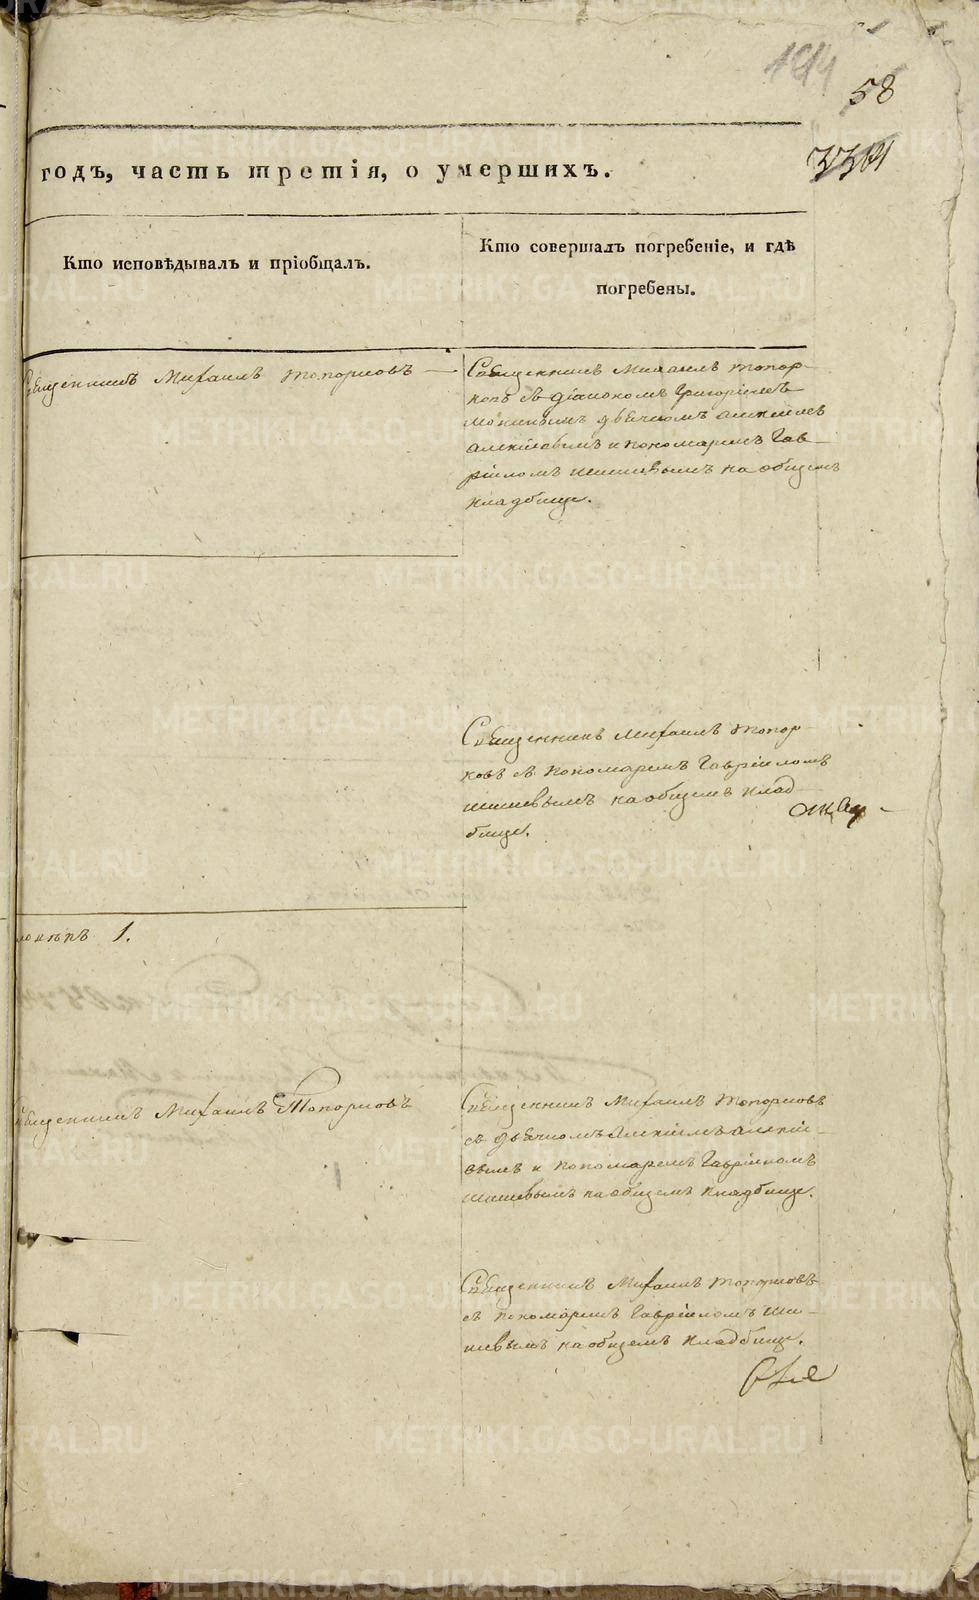 58
годъ, часть третія, о умершихъ.
Кто исповѣдывалъ и пріобщалъ.
Кто совершалъ погребеніе, и гдѣ
погребены.
Священникъ Михаилъ Топорковъ
Священникъ Михаилъ Топор-
ковъ съ діакономъ Григоріемъ
дьячкомъ Алексіемъ
Алексіевымъ и пономаремъ Гав-
ріиломъ Шишевымъ на общемъ
кладбище.
Священникъ Михаилъ Топор-
ковъ съ пономаремъ Гавріиломъ
Шишевымъ на общемъ клад-
бище.
1.
Священникъ Михаилъ Топорковъ
Священникъ Михаилъ Топорковъ
съ дьячкомъ Алексіемъ Алексіе-
вымъ и пономаремъ Гавріиломъ
Шишевымъ на общемъ кладбище.
Священникъ Михаилъ Топорковъ
съ пономаремъ Гавріиломъ Ши-
шевымъ на общемъ кладбище.
METRIKI.GASO-URAL.RU